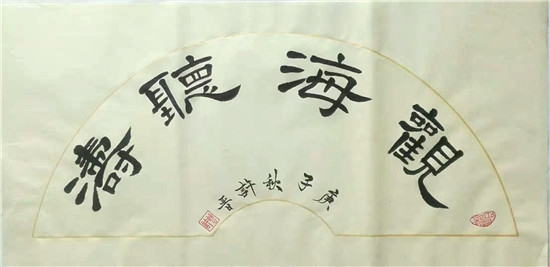 觀海聽濤
庚子秋許